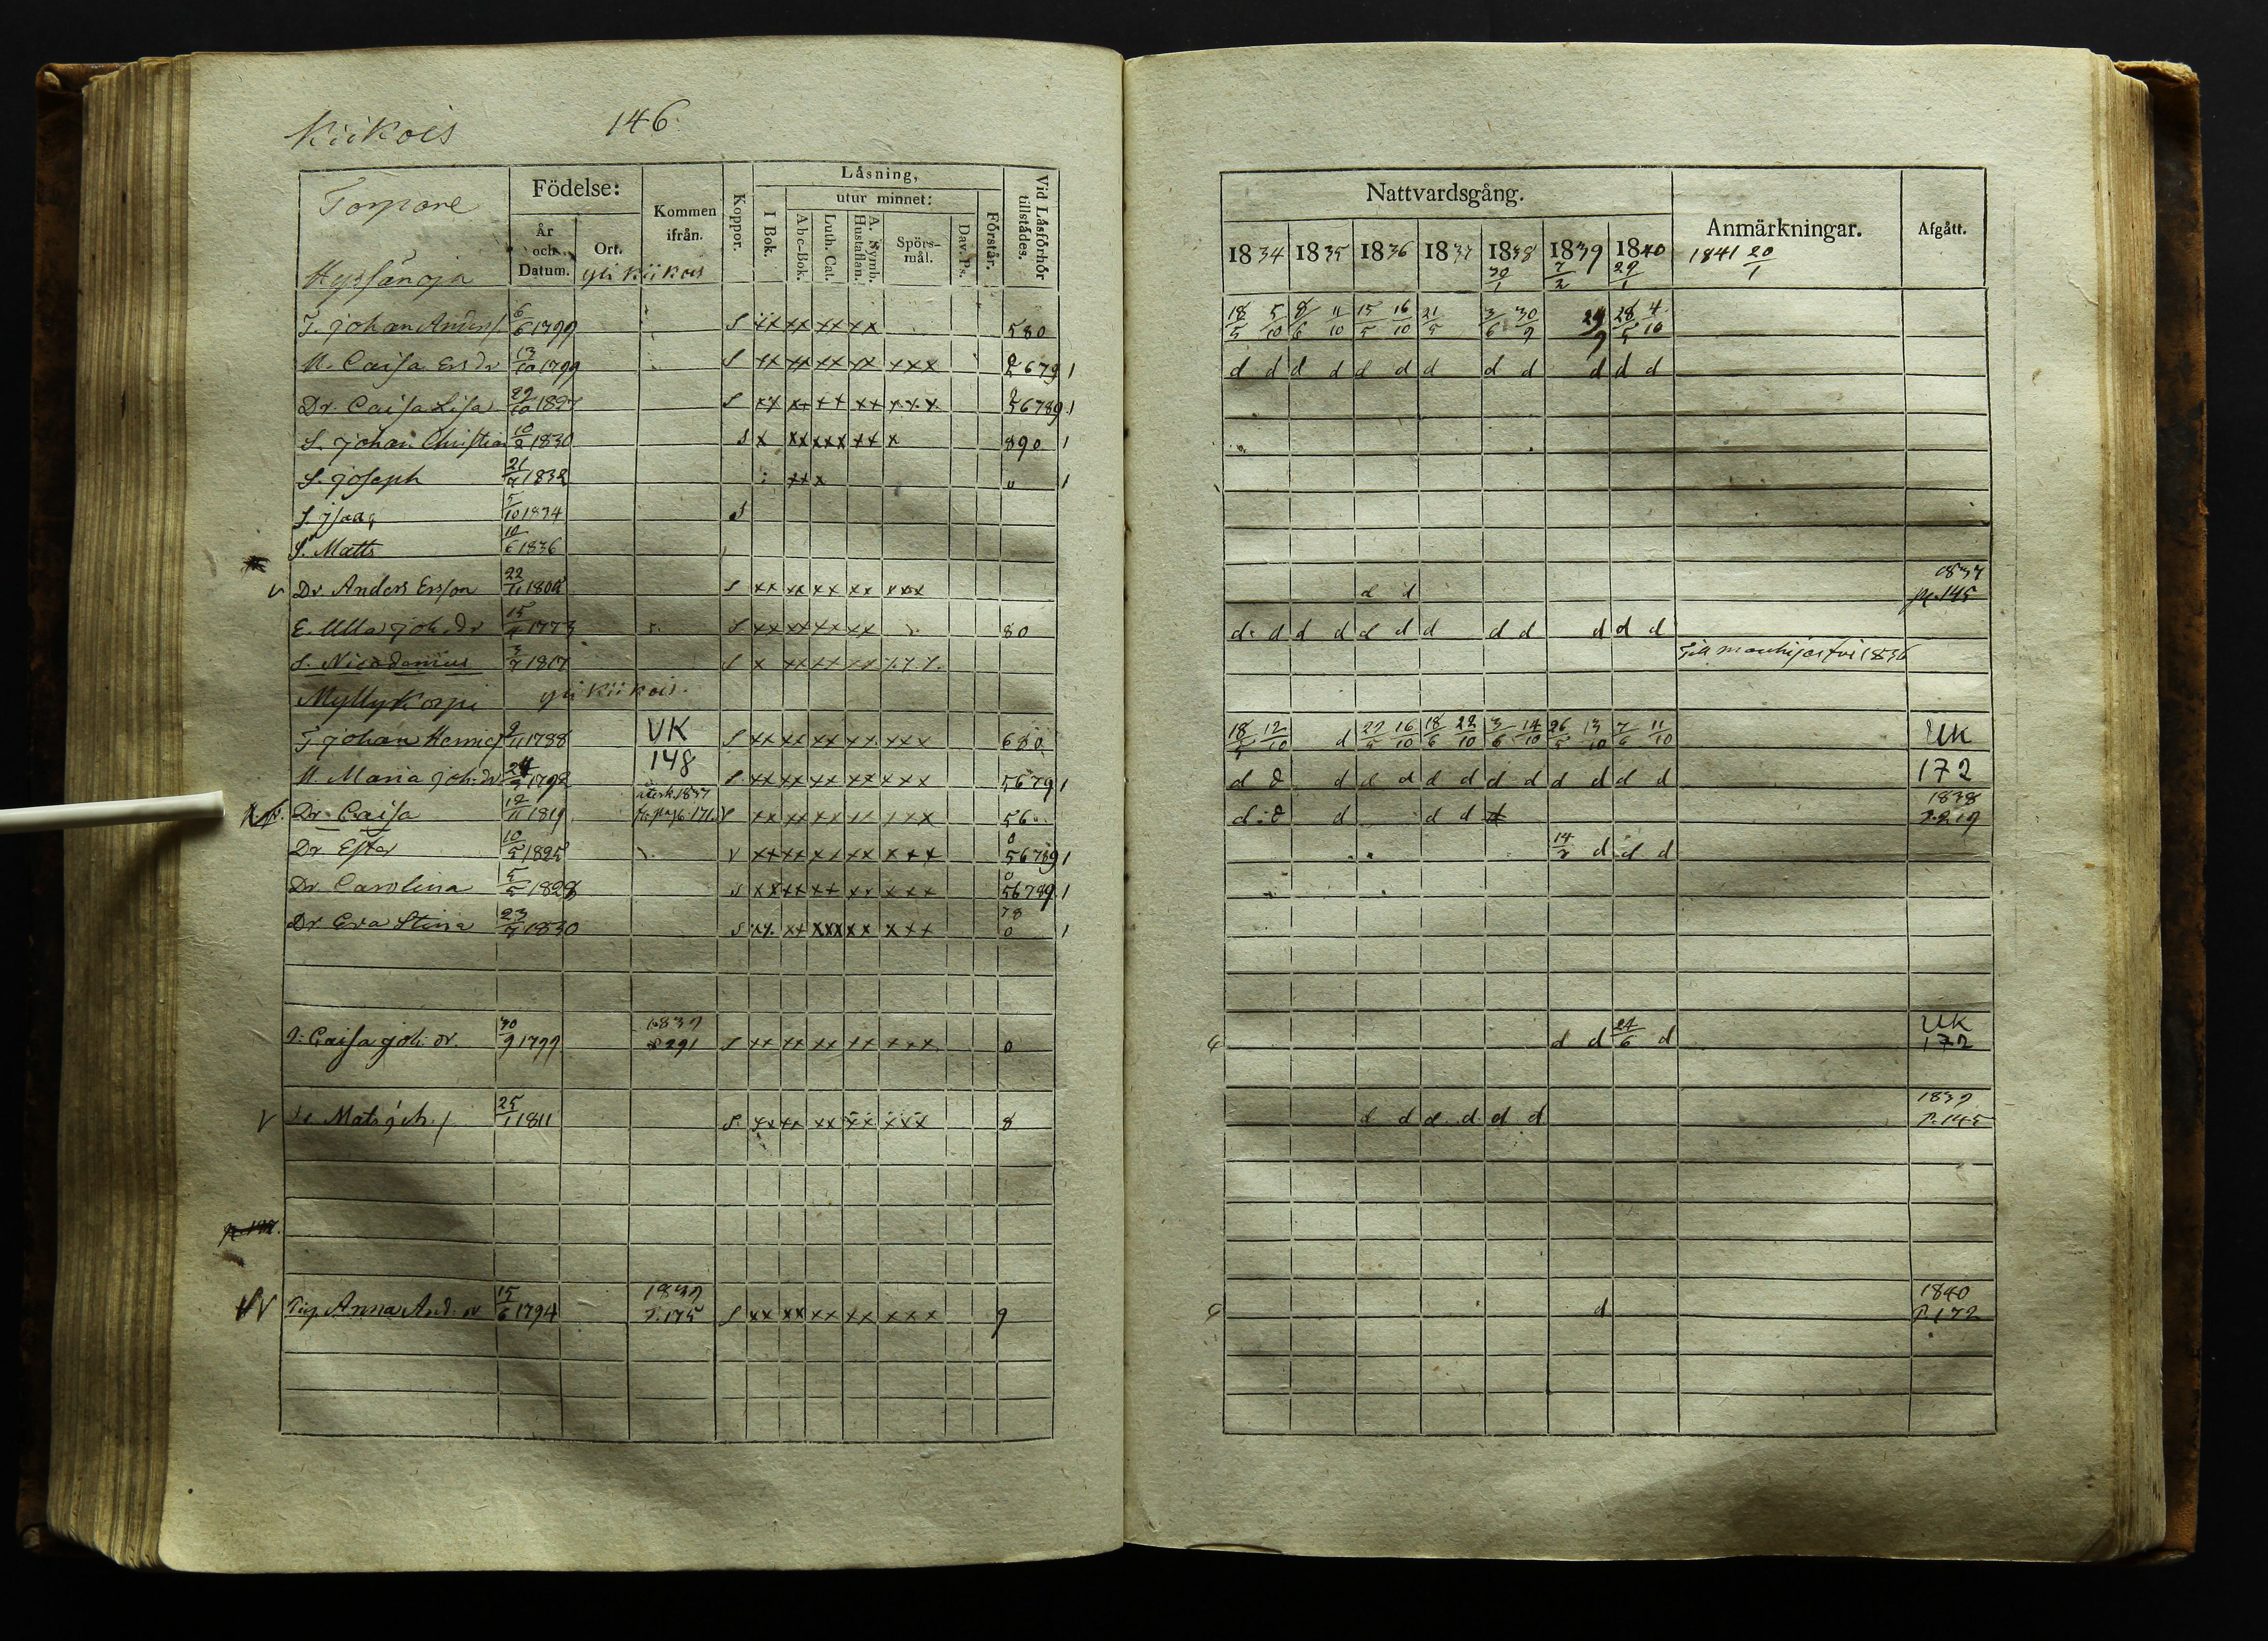 Kiikois 146.
Torpare
Födelse:
År och Datum.
Ort.
Kommen ifrån.
Koppor.
Läsning,
I Bok.
utur minnet:
Abc-Bok.
Luth. Cat.
A. Symb. Hustaflan.
Spörs-mål.
Dav. Ps.
Förstår.
Vid Läsförhör tillstådes.
yli Kiikois
T. Johan Anders. 6/6 1799 S xx xx xx xx 580
H. Caisa Ersdr 13/10 1799 S xx xx xx xx xxx 679 1
Dr. Caisa Lisa 29/10 S xx xx xx xx xxx 56789 1
S. Johan Christian 10/2 1830 S x xx xxx xx x 890 1
S. Joseph 21/7 1832 xx x 0 1
S. Isaac 5/10 1834 S
S. Matts 10/6 1836
Dr. Anders Ersson 22/11 S xx xx xx xx xxx
E. Ulla Joh. dr 1773 S xx xx xx xx 80
S. Nicodemus 3/7 1817 S x xx xx xx xxx
Myllykorpi yli Kiikois.
T. Johan Henric 9/11 1788 VK S xx xx xx xx xxx 680
H. Maria Joh. dr 1792 148 S xx xx xx xx xxx 5679 1
Dr. Caisa 12/11 1819 xx xx xx xx xxx 56
Dr Ester 10/5 1825 V xx xx xx xx xxx 0 56789 1
Dr. Carolina 5/5 1828 S xx xx xx xx xxx 0 56789 1
Dr. Eva Stina 23/7 1830 S xx xx xxx xx xxx 78 0 1
Caisa Joh. dr. 30/9 1799 1839 291 S xx xx xx xx xxx 0
V Mats Joh. 25/1 1811 S. xx xx xx xx xxx 8
V Anna And. dr 15/6 1794 1839 P. 175 S xx xx xx xx xxx 9
Nattvardsgång.
1834 1835 1836 1837 1838 1839 1840
30/1 7/2 29/1
Anmärkningar.
1841 20/1
Afgått.
18/5 5/10 8/6 11/10 15/5 16/10 21/5 3/6 30/9 29/9 28/5 4/10
d d d d d d d d d d d d
d d 1837 p. 145
d. d d d d d d d d d d d
Till 1836
18/5 12/10 d 22/5 16/10 18/6 22/10 3/6 14/10 26/5 13/10 7/6 11/10 UK
d d d d d d d d d d d d d 172
d. d d d d d 1838 P. 219
14/2 d d d
d d 24/6 d UK 172
d d d d d d 1839 P. 145
d 1840 P. 172